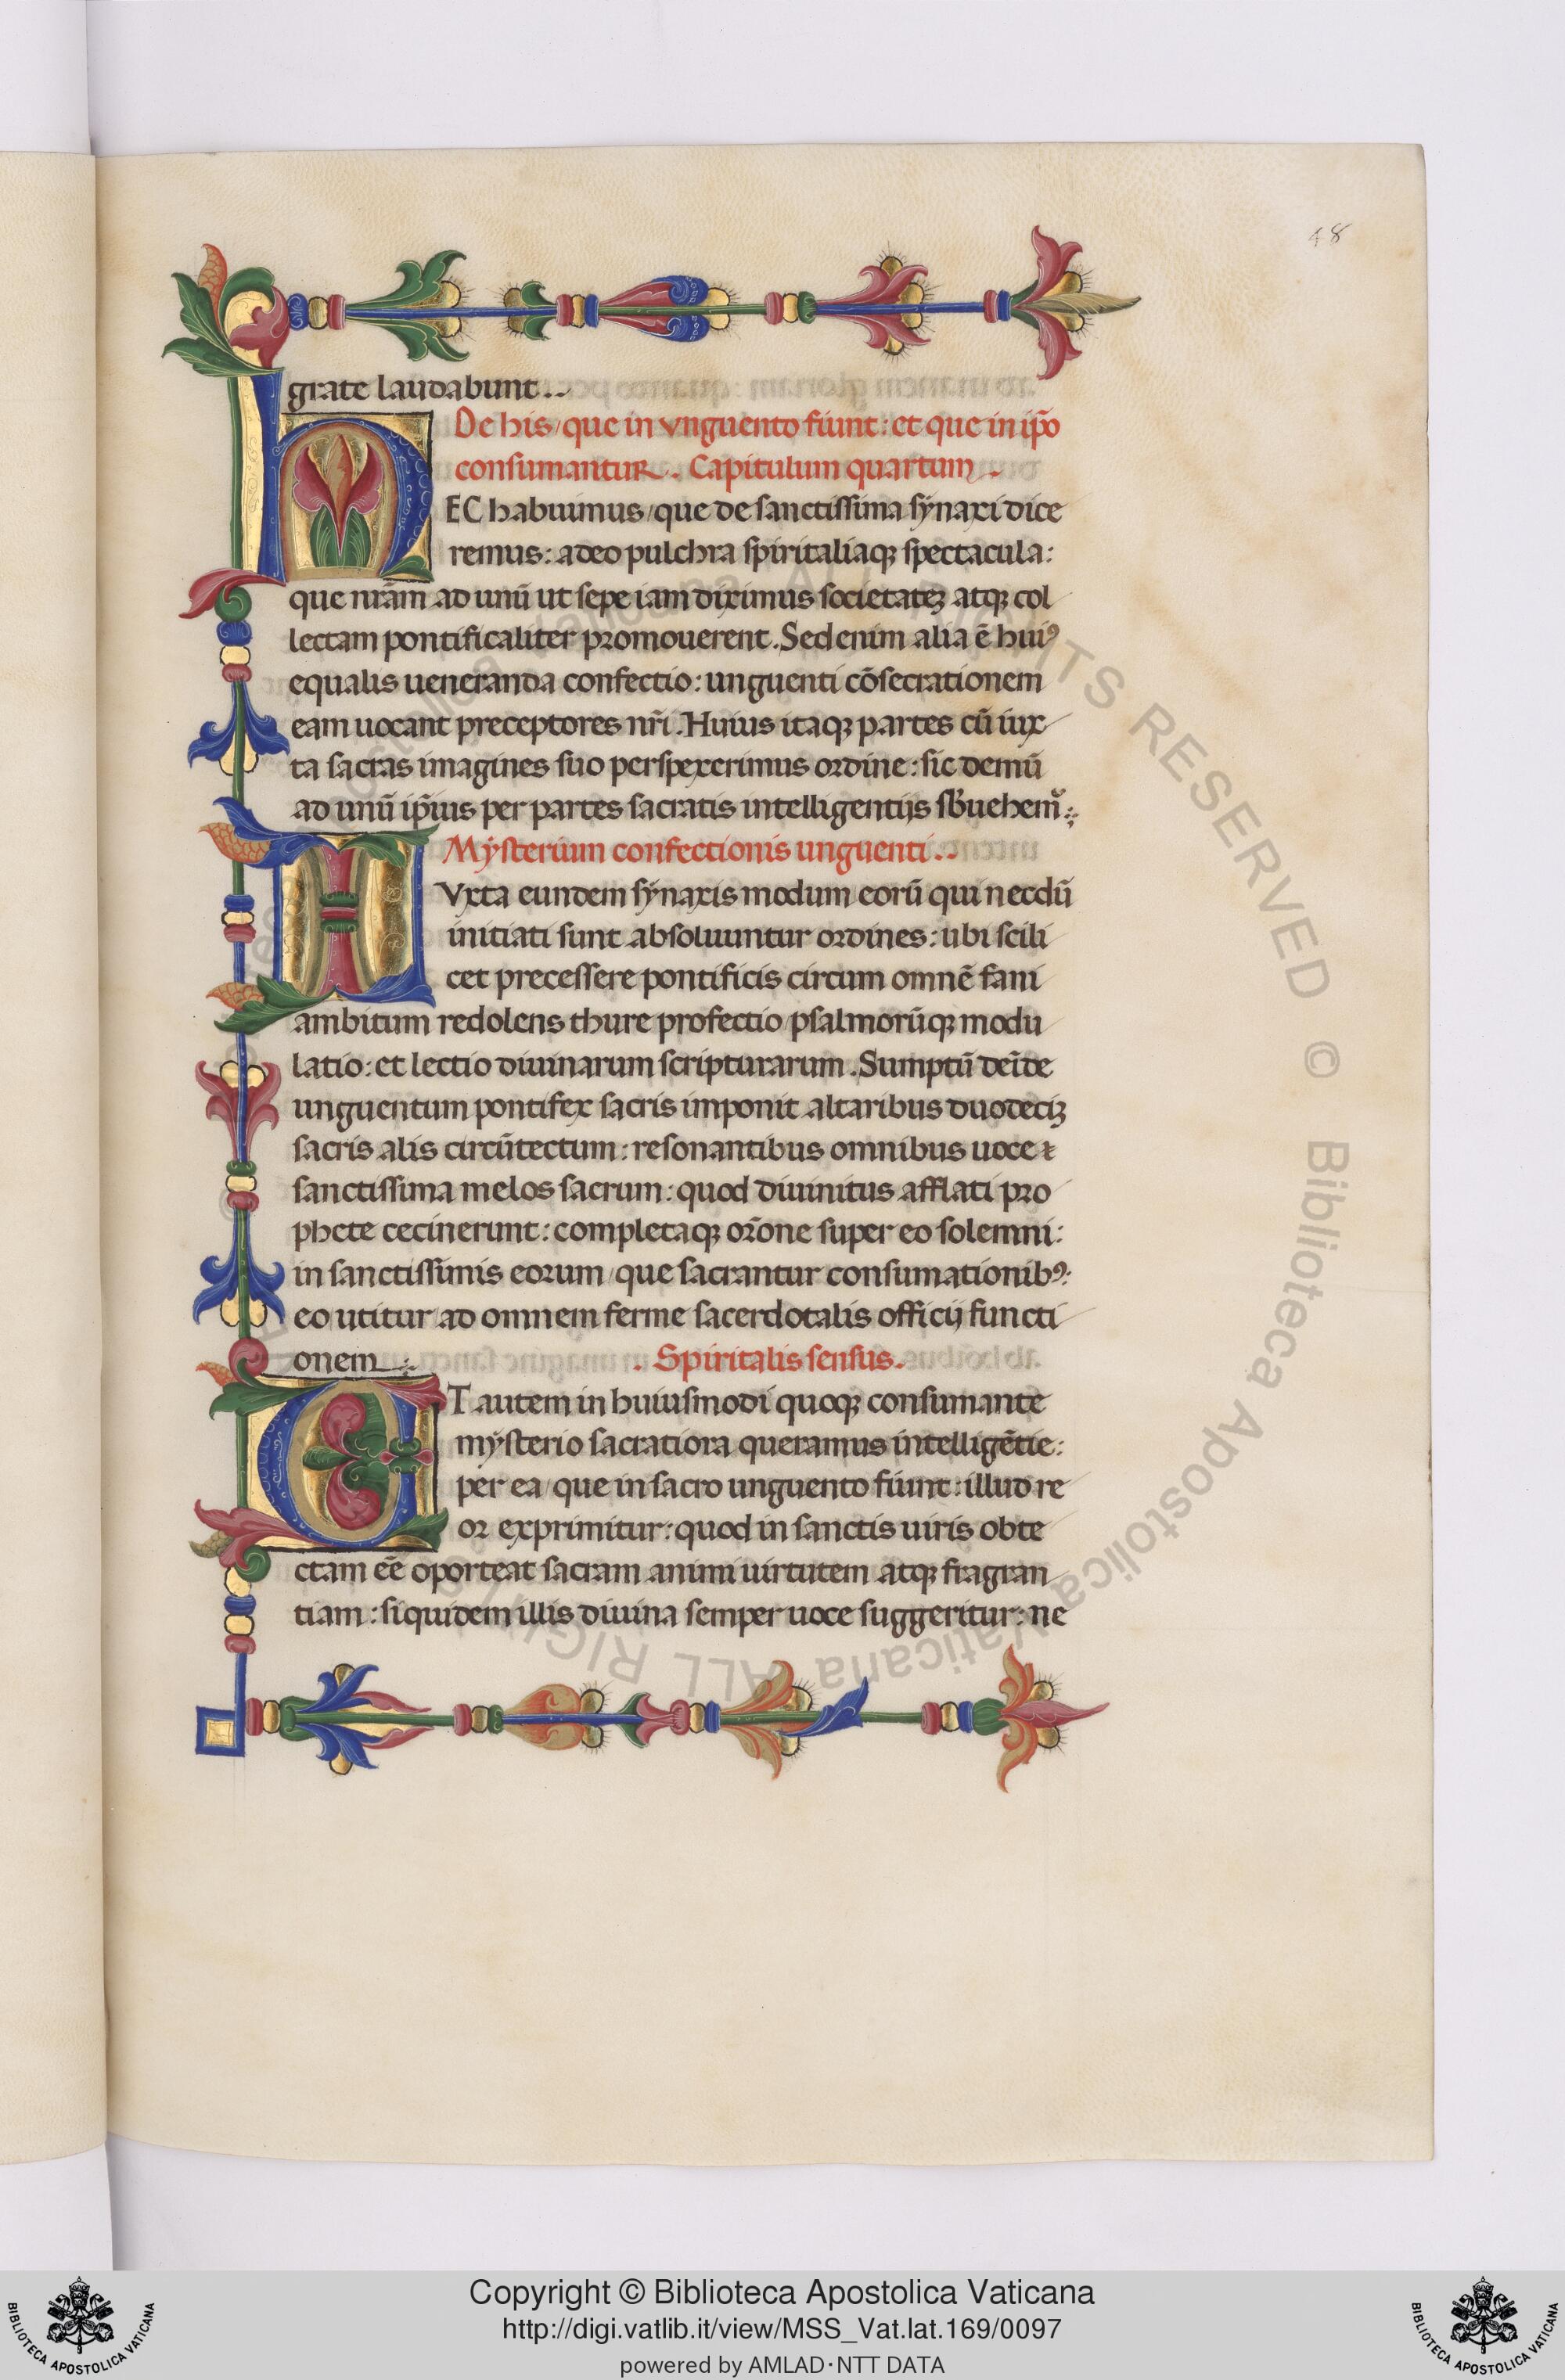 48
grate laudabunt..
De his/que in vnguento fiunt: et que in ip̃o
consumantur.. Capitulum quartum.
HEC habuimus/que de sanctissima sẏnaxi dice
remus: adeo pulchra spiritaliaqꝫ spectacula:
que nr̃am ad unũ ut sepe iam diximus societatẽ atqꝫ col
lectam pontificaliter promouerent. Sed enim alia ẽ huiꝰ
equalis ueneranda confectio: unguenti cõsecrationem
eam uocant preceptores nr̃i. Huius itaqꝫ partes cũ iux
ta sacras imagines suo perspexerimus ordine: sic demũ
ad unũ ip̃ius per partes sacratis intelligentijs sb̃uehemꝰ:
Mẏsterium confectionis unguenti..
IVxta eundem sẏnaxis modum eorũ qui necdũ
initiati sunt absoluuntur ordines: ubi scili
cet precessere pontificis circum omnẽ fani
ambitum redolens thure profectio/psalmorũqꝫ modu
latio: et lectio diuinarum scripturarum. Sumptũ deĩde
unguentum pontifex sacris imponit altaribus duodeciꝫ
sacris alis circũtectum: resonantibus omnibus uoce ⁊
sanctissima melos sacrum: quod diuinitus afflati pro
phete cecinerunt: completaqꝫ or̃one super eo solemni:
in sanctissimis eorum/que sacrantur consumationibꝰ:
eo utitur/ad omnem ferme sacerdotalis officij functi
onem.:
. Spiritalis sensus.
ET autem in huiusmodi quoqꝫ consumante
mẏsterio sacratiora queramus intelligẽtie:
per ea/que in sacro unguento fiunt: illud re
or exprimitur: quod in sanctis uiris obte
ctam eẽ oporteat sacram animi uirtutem atqꝫ fragran
tiam: siquidem illis diuina semper uoce suggeritur: ne
Biblioteca Apostolica Vaticana ALL RIGHTS RESERVED ©
Copyright © Biblioteca Apostolica Vaticana
http://digi.vatlib.it/view/MSS_Vat.lat.169/0097
powered by AMLAD·NTT DATA
BIBLIOTECA APOSTOLICA VATICANA
BIBLIOTECA APOSTOLICA VATICANA